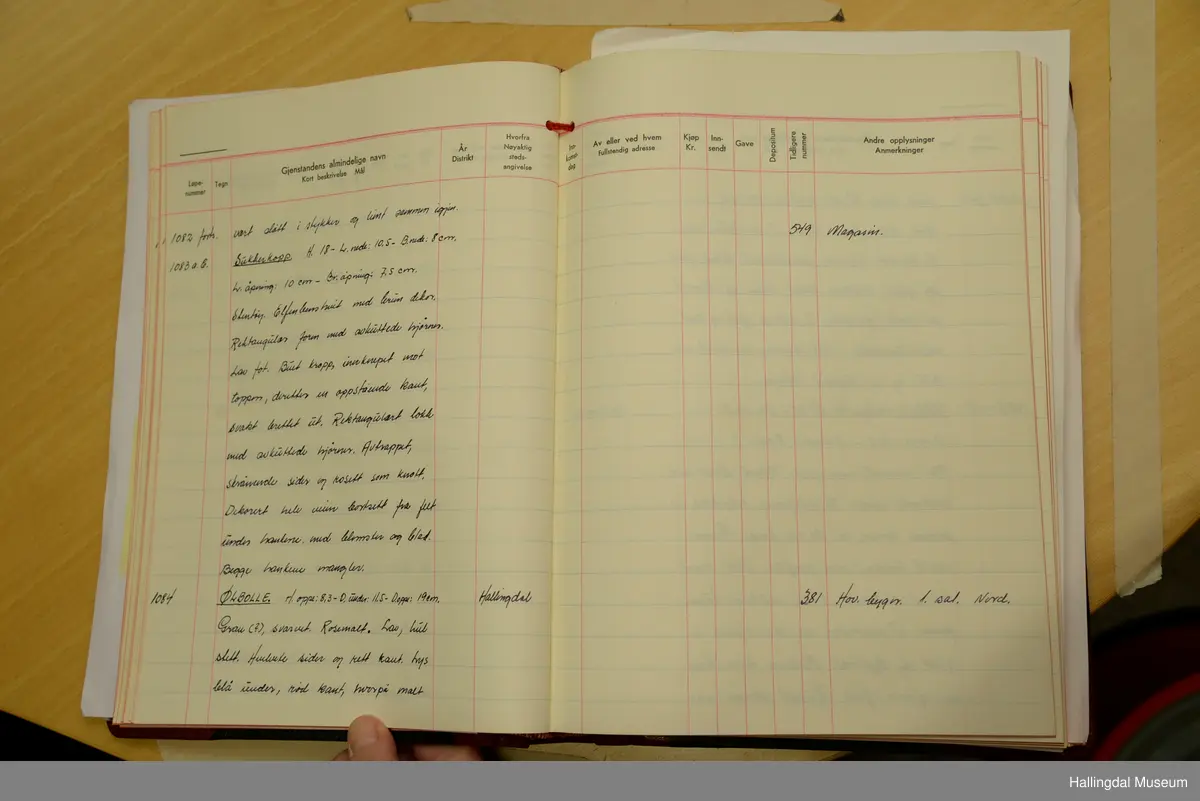 Løpe-
nummer
Tegn
Gjenstandens almindelige navn
Kort beskrivelse Mål
År
Distrikt
Hvorfra
Nøyaktig
steds-
angivelse
Av eller ved hvem
fullstendig adresse
Kjøp
Kr.
Inn-
sendt
Gave
Depositum
Tidligere
nummer
Andre opplysninger
Anmerkninger
1082 forts. vært slått i stykker og limt sammen igjen.
1083 a.b. Sukkerkopp H. 18 - L. nede: 10.5 - B. nede: 8 cm. 549 Magasin.
L. åpning: 10 cm - Br. åpning: 7.5 cm.
Stentøy. Elfenbenshvit med brun dekor.
Rektangulær form med avkuttede hjørner.
Lav fot. Buet kropp, innknepet mot
toppen, deretter en oppstående kant,
svakt brettet ut. Rektangulært lokk
med avkuttede hjørner. Avtrappet,
skrånende sider og rosett som knott.
Dekorert hele veien bortsett fra felt
under hankene. med blomster og blad.
Begge hankene mangler.
1084 ØLBOLLE. H. oppe: 8,3 - D. under: 11.5 - D. oppe: 19 cm. Hallingdal 381 Hov. bygn. 1. sal. Nord.
Gran (?), svarvet. Rosemalt. Lav, hul
slett. Hvelvede sider og rett kant. Lys
blå under, rød kant, hvorpå malt
Hallingdal Museum